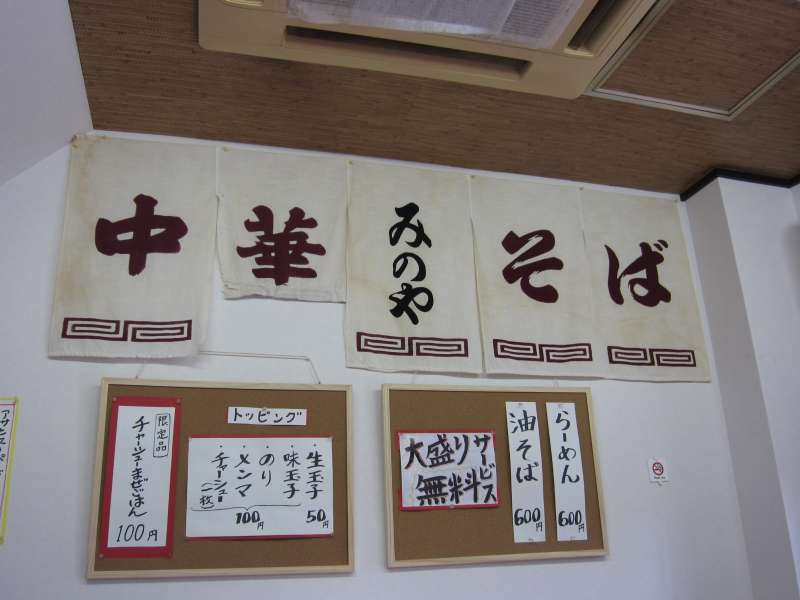 中華
みのや
そば
限定品
チャーシューまぜごはん
100円
トッピング
・生玉子 50円
・味玉子
・のり
・メンマ
・チャーシュー(一枚)
100円
大盛り
サービス
無料
油そば
600円
らーめん
600円